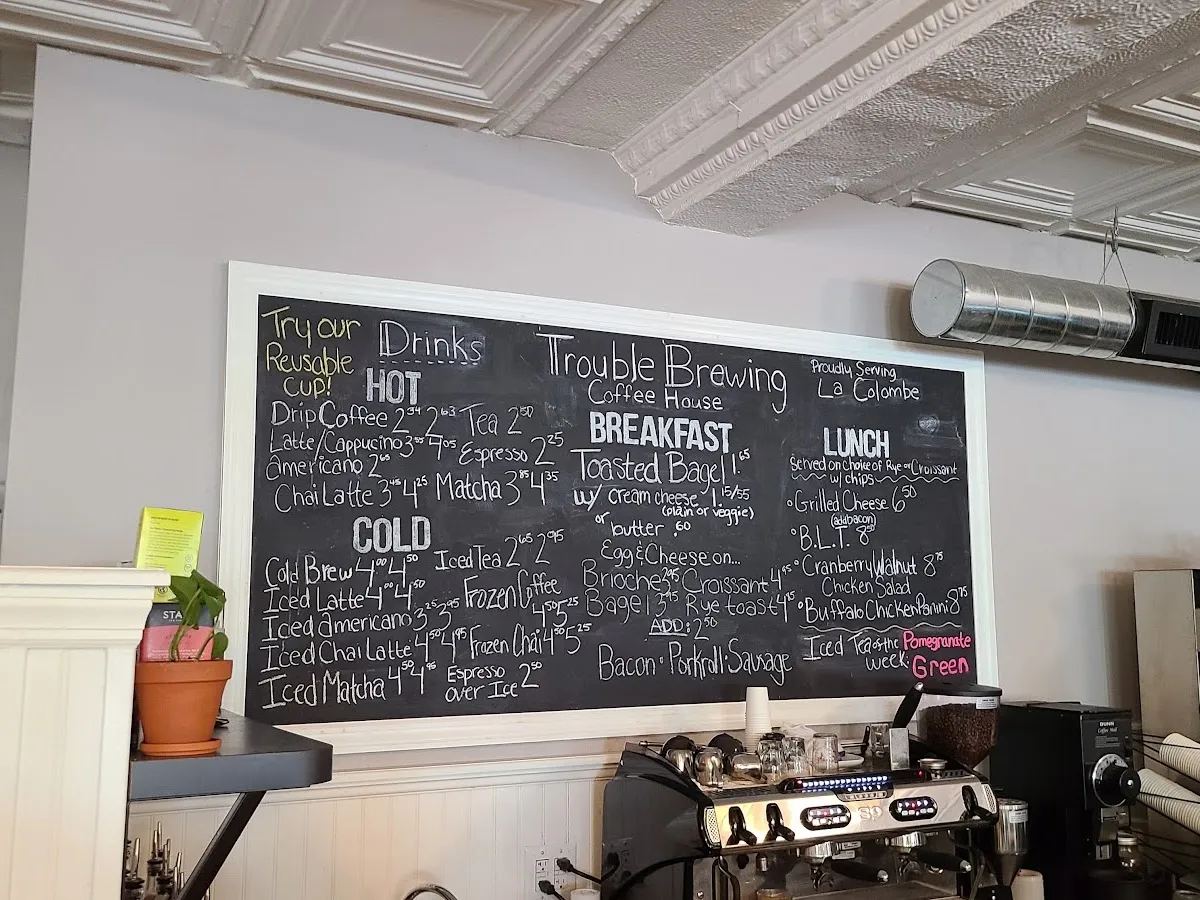 Try our
Reusable
cup!
Drinks
HOT
Drip Coffee 2.34 2.63 Tea 2.50
Latte/Cappucino 3.55 4.05 Espresso 2.25
americano 2.65
Chai Latte 3.45 4.25 Matcha 3.85 4.35
COLD
Cold Brew 4.00 4.50 Iced Tea 2.65 2.95
Iced Latte 4.00 4.50 Frozen Coffee
4.50 5.25
Iced americano 3.25 3.95
Iced Chai Latte 4.50 4.95 Frozen Chai 4.50 5.25
Iced Matcha 4.50 4.95 Espresso
over Ice 2.50
Trouble Brewing
Coffee House
BREAKFAST
Toasted Bagel 1.65
w/ cream cheese 1.15/55
(plain or veggie)
or butter .60
Egg & Cheese on...
Brioche Croissant 4.95
Bagel 3.95 Rye toast 4.25
ADD: 2.50
Bacon • Porkroll • Sausage
Proudly Serving
La Colombe
LUNCH
Served on Choice of Rye or Croissant
w/ chips
Grilled Cheese 6.50
(add bacon)
B.L.T. 8.50
Cranberry Walnut 8.75
Chicken Salad
Buffalo Chicken Panini 8.75
Iced Tea of the
week:
Pomegranate
Green
BUNN
S9